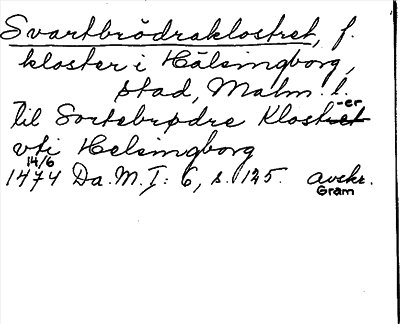 Svartbrödraklostret, f.
kloster i Hälsingborg,
stad, Malm. l.
Til Sortebrødre Kloster
vti Helsingborg
14/6
1474 Da.M. I: 6, s. 125. Avskr.
Gram